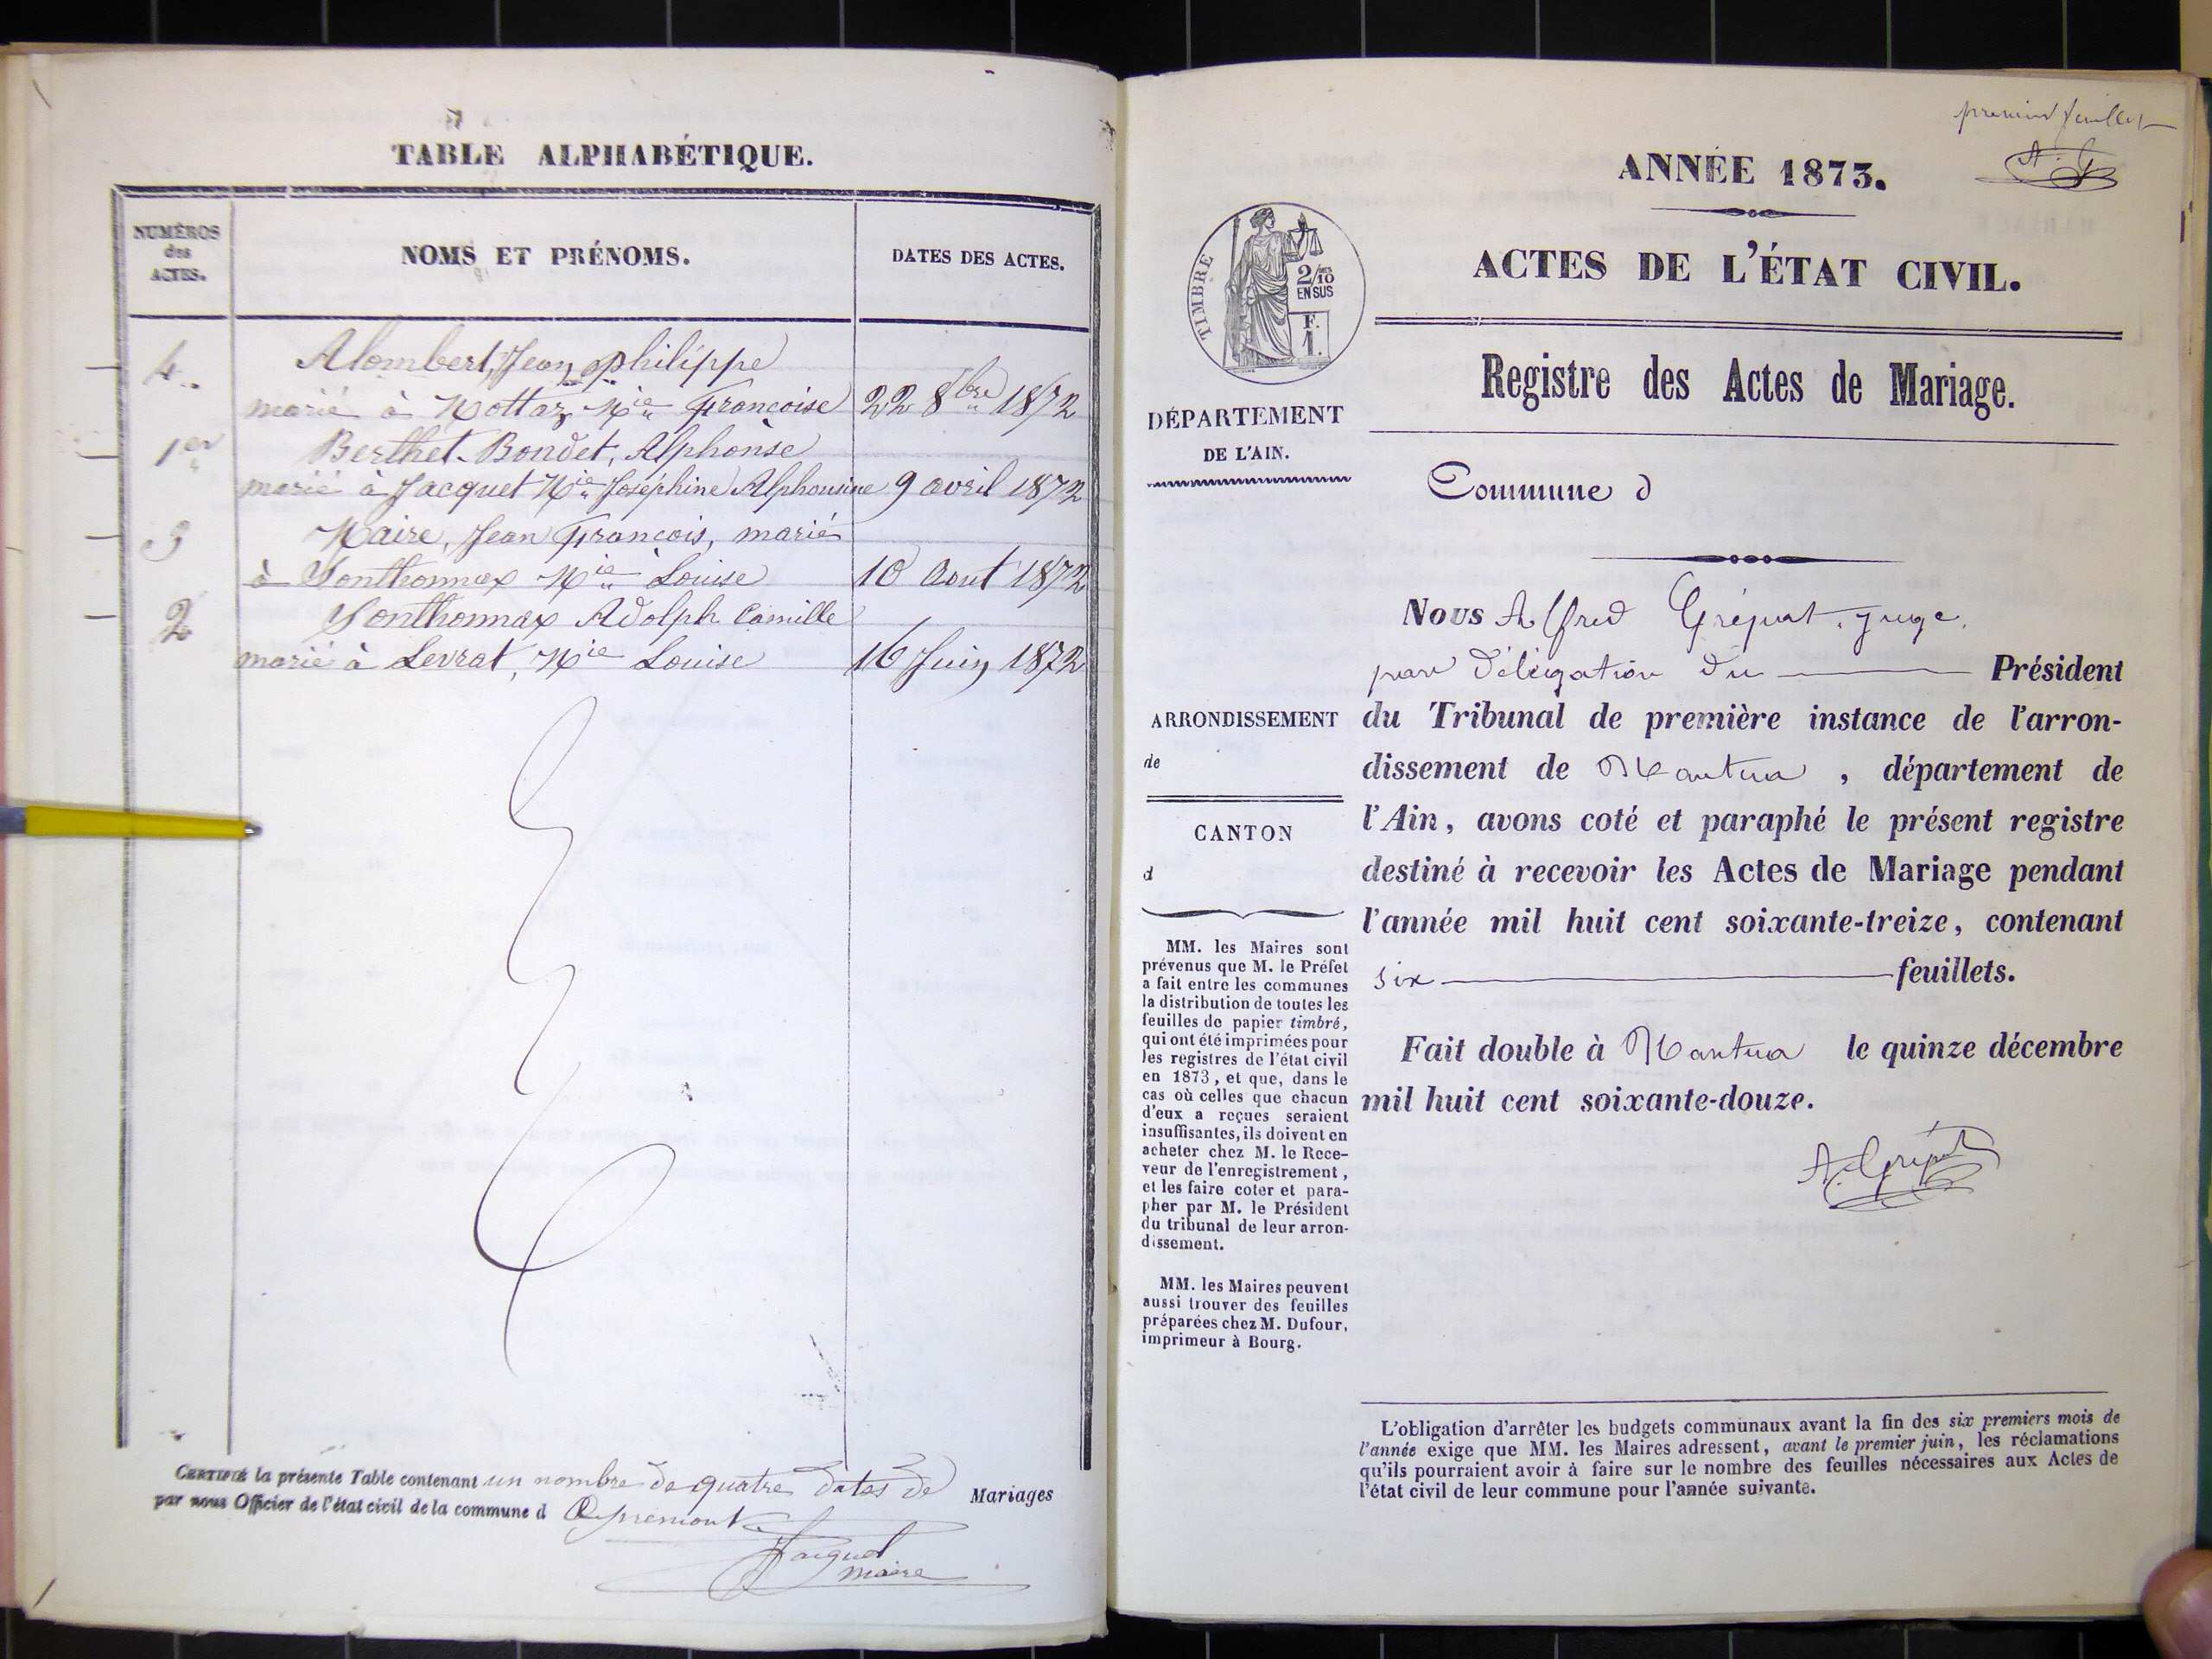 TABLE ALPHABÉTIQUE.
NUMÉROS
des
ACTES.
NOMS ET PRÉNOMS.
DATES DES ACTES.
4 Alombert, Jean philippe
marié à Nottaz Mie Françoise 22 8bre 1872
1er Berthet-Bondet, Alphonse
marié à Jacquet Mie Joséphine Alphonsine 9 avril 1872
3 Maire, Jean François, marié
à Sonthonnax Mie Louise 10 Aout 1872
2 Sonthonnax Adolph Camille
marié à Levrat, Mie Louise 16 Juin 1872
CERTIFIÉ la présente Table contenant un nombre de quatre dates de Mariages
par nous Officier de l'état civil de la commune d Apremont
Jacquet
maire
premier feuillet
A. G
ANNÉE 1873.
ACTES DE L'ÉTAT CIVIL.
TIMBRE
2/10
EN SUS
F.
1.
Registre des Actes de Mariage.
DÉPARTEMENT
DE L'AIN.
Commune d
Nous Alfred Grépat, juge,
par délégation du Président
ARRONDISSEMENT
de
CANTON
d
du Tribunal de première instance de l'arron-
dissement de Mantua, département de
l'Ain, avons coté et paraphé le présent registre
destiné à recevoir les Actes de Mariage pendant
l'année mil huit cent soixante-treize, contenant
six feuillets.
Fait double à Mantua le quinze décembre
mil huit cent soixante-douze.
A. Grépat
MM. les Maires sont
prévenus que M. le Préfet
a fait entre les communes
la distribution de toutes les
feuilles de papier timbré,
qui ont été imprimées pour
les registres de l'état civil
en 1873, et que, dans le
cas où celles que chacun
d'eux a reçues seraient
insuffisantes, ils doivent en
acheter chez M. le Rece-
veur de l'enregistrement,
et les faire coter et para-
pher par M. le Président
du tribunal de leur arron-
dissement.
MM. les Maires peuvent
aussi trouver des feuilles
préparées chez M. Dufour,
imprimeur à Bourg.
L'obligation d'arrêter les budgets communaux avant la fin des six premiers mois de
l'année exige que MM. les Maires adressent, avant le premier juin, les réclamations
qu'ils pourraient avoir à faire sur le nombre des feuilles nécessaires aux Actes de
l'état civil de leur commune pour l'année suivante.